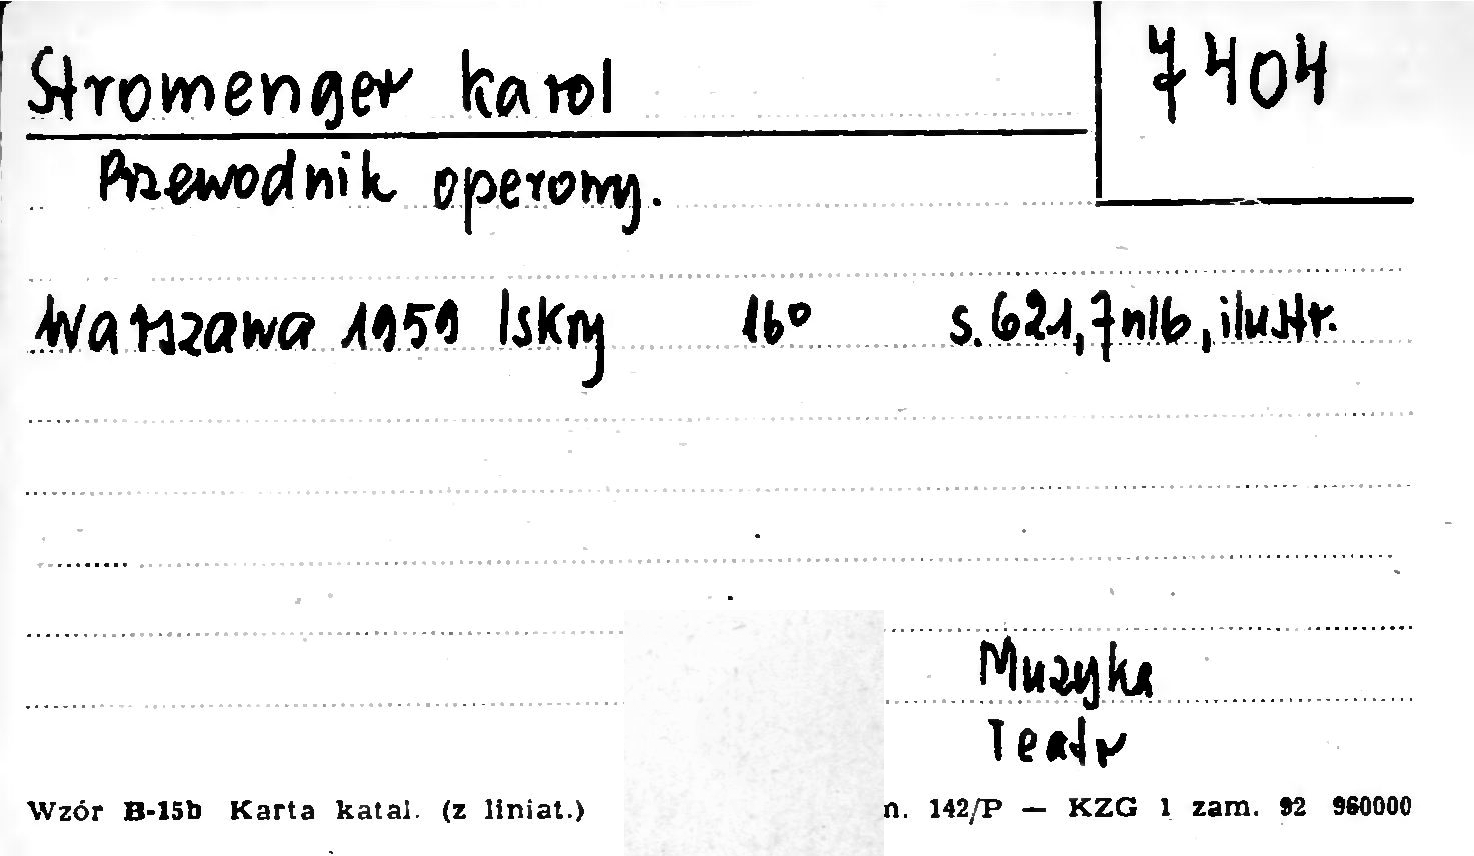 Stromenger Karol 7404
Przewodnik operowy.
Warszawa 1959 Iskry 16° s. 621, 7 nlb, ilustr.
Muzyka
Teatr
Wzór B-15b Karta katal. (z liniat.) n. 142/P — KZG 1 zam. 92 960000